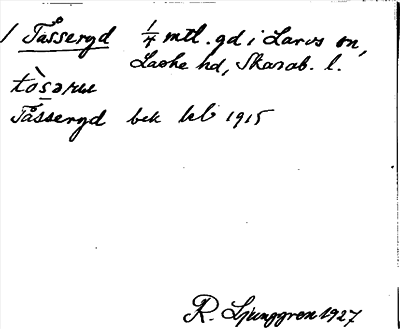 / Tåssergd 1/4 mtl. gd i Larvs sn,
Laske hd, Skarab. l.
Tåssergd bek kb 1915
R. Ljunggren 1927